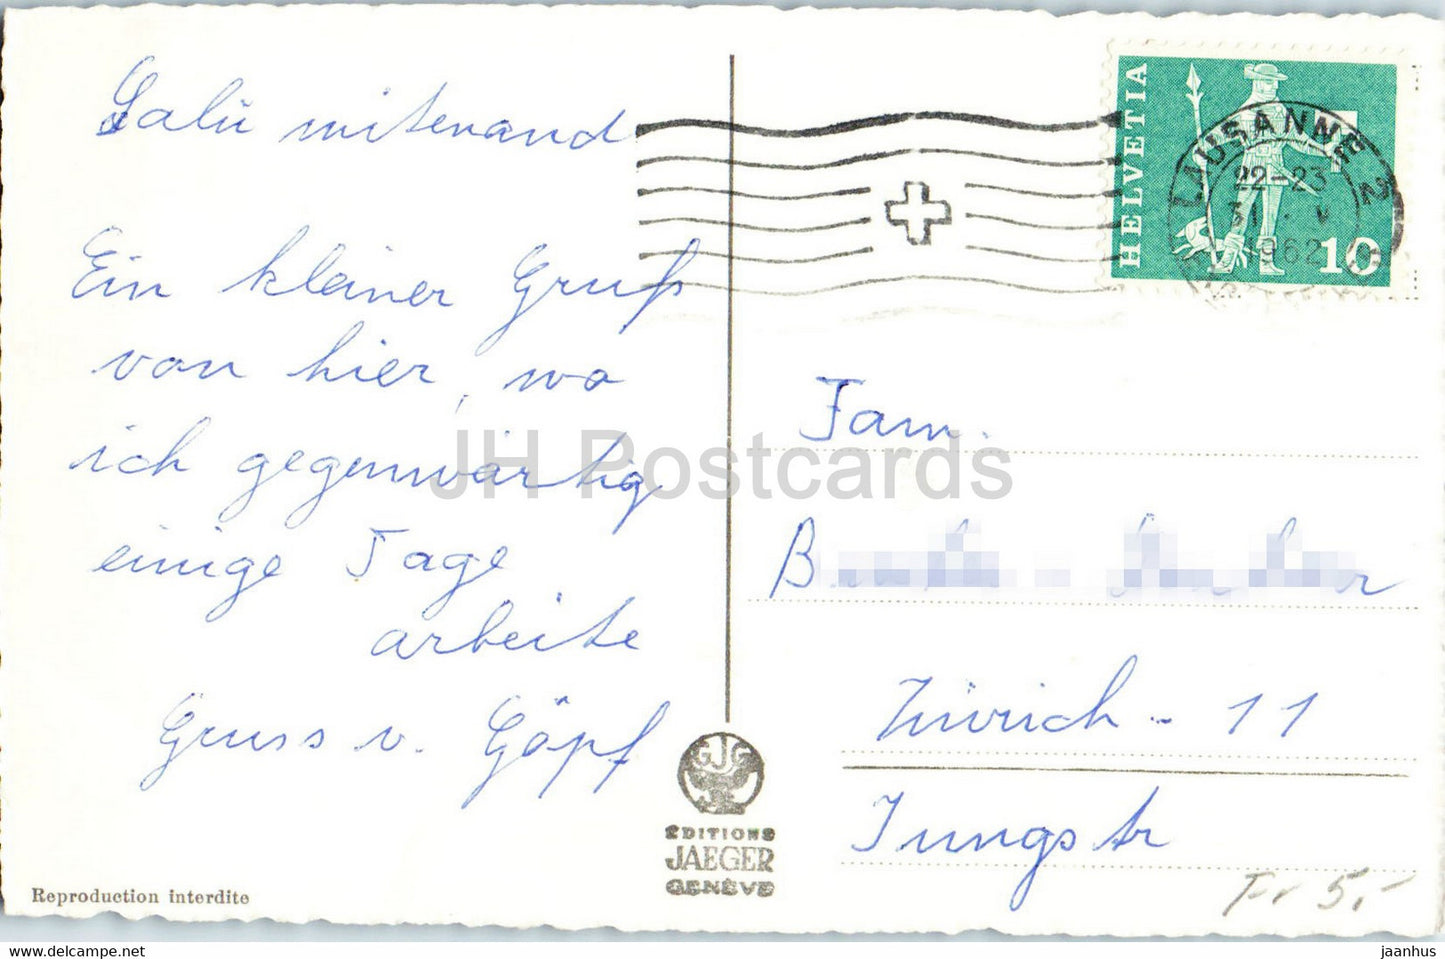 Salü mitenand
Ein kleiner Gruß
von hier, wo
ich gegenwärtig
einige Tage
arbeite
Gruss v. Göpf
HELVETIA
10
LAUSANNE 2
22-23
31
1962
Fam.
Zürich - 11
Jungstr
Fr 5.-
GJG
EDITIONS
JAEGER
GENÈVE
Reproduction interdite
JH Postcards
www.delcampe.net
jaanhus